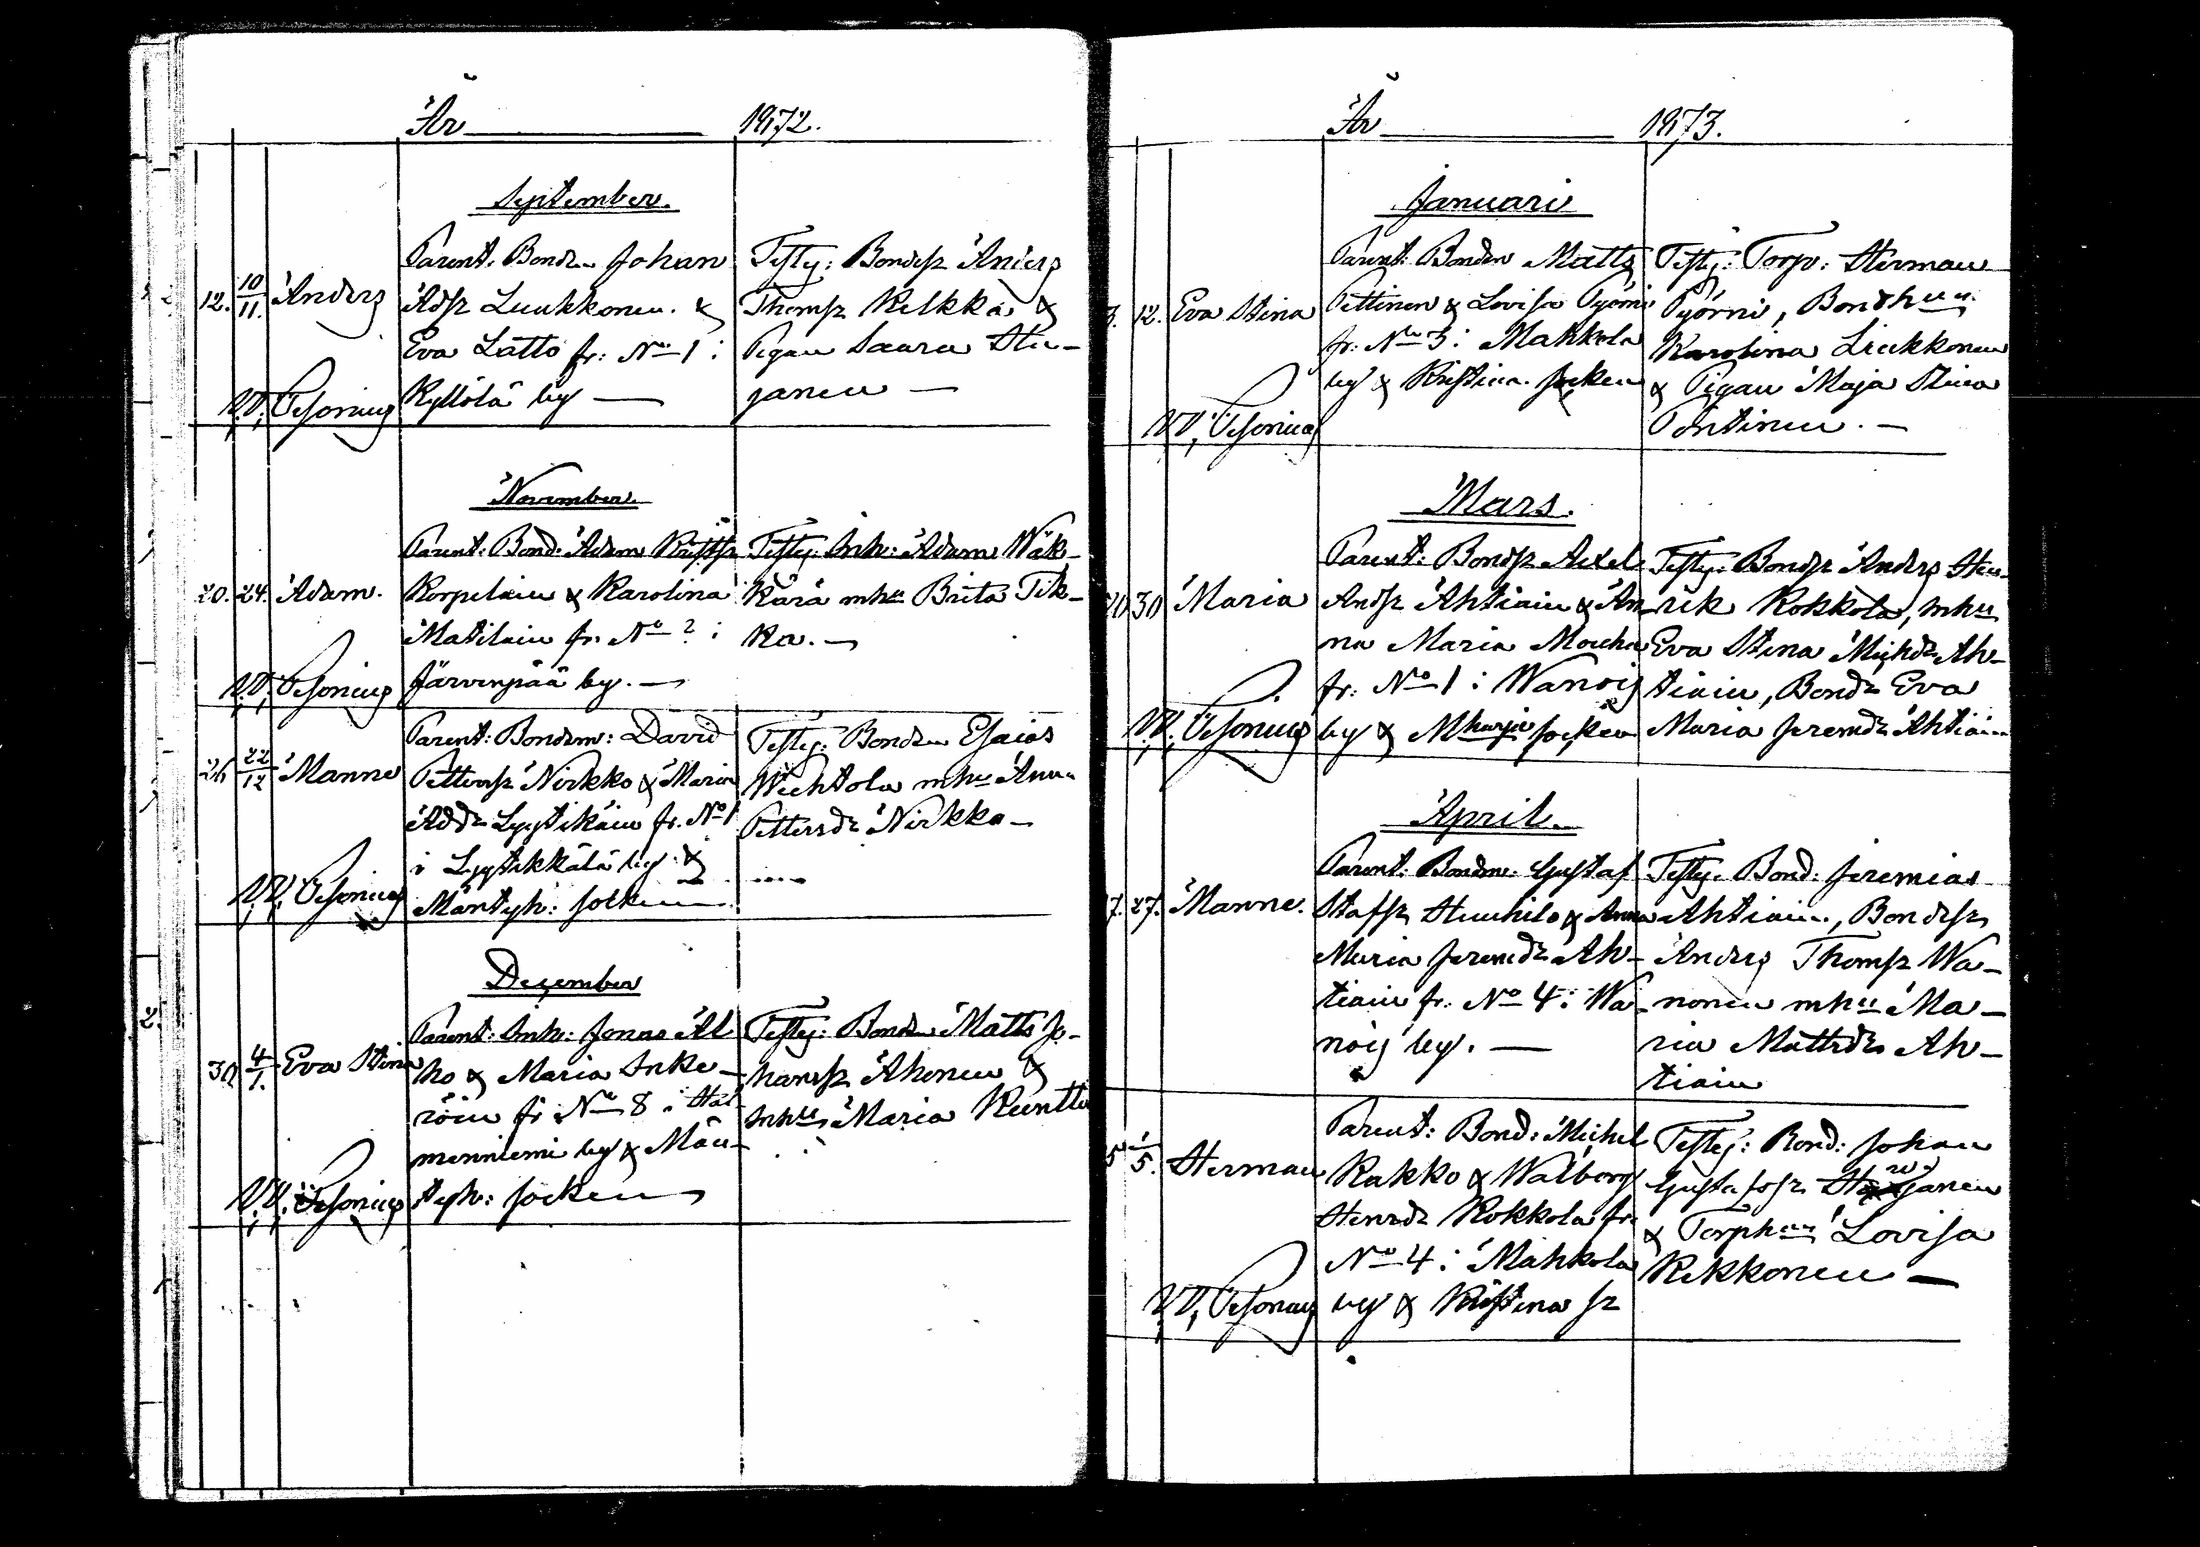 År 1872.
September.
12. 10/11 Anders
Parent: Bonden Johan
Adsr Luukkonen &
Eva Lätto fr: No 1 i
Kyllölä by —
Testes: Bondesr Anders
Thomsr Kelkka &
Pigan Saara Hu-
janen —
V.V. Pesonius
November.
20. 24. Adam.
Parent: Bond: Adam Kristsr
Korpelain & Karolina
Matilain fr. No 2 i
Järvenpää by. —
Testes: Inh: Adam Wäk-
kärä mhu Brita Tik-
ka. —
V.V. Pesonius
26 22/12 Manne
Parent: Bondem: David
Pettersr Nirkko & Maria
Addr Lyytikäin fr. No 1
i Lyytikkälä by &
Mäntyh: socken
Testes: Bonden Esaias
Wihtola mhu Anna
Pettersdr Nirkko —
V.V. Pesonius
December
30 4/1. Eva Stina
Parent: Inh: Jonas Al
ho & Maria Inke-
röin fr No 8 i Hal-
menniemi by & Män-
tyh: socken
Testes: Bonden Matts Jo-
hansr Ahonen &
Inhu Maria Kunttu
V.V. Pesonius
År 1873.
Januari
3. 12. Eva Stina
Parent: Bonden Matts
Pettinen & Lovisa Pyörni
fr: No 3 i Makkola
by & Kristina socken
Testes: Torp: Herman
Pyörni, Bondhun
Karolina Liukkonen
& Pigan Maja Stina
Pöntinen. —
V.V. Pesonius
Mars.
20 30 Maria
Parent: Bondsr Axel
Andsr Ahtiain & An
na Maria Moucha
fr: No 1 i Wanois
by & Mharju socken
Testes: Bondsr Anders Hen-
rik Rokkola, mhu
Eva Stina Michdr Ah-
tiain, Bondr Eva
Maria Jeremdr Ahtiain
V.V. Pesonius
April.
7. 27. Manne.
Parent: Bondm: Gustaf
Stafsr Huuhilo & Anna
Maria Jeremdr Ah-
tiain fr. No 4 i Wa
nois by. —
Testes: Bond: Jeremias
Ahtiain, Bondesr
Anders Thomsr Wa-
nonen mhu Ma-
ria Mattsdr Ah-
tiain
5 1/5. Herman
Parent: Bond: Michel
Kakko & Walborg
Henrdr Rokkola fr:
No 4 i Mahkola
by & Kristina sr
Testes: Bond: Johan
Gustafssr Hujanen
& Torphun Lovisa
Kekkonen —
V.V. Pesonius